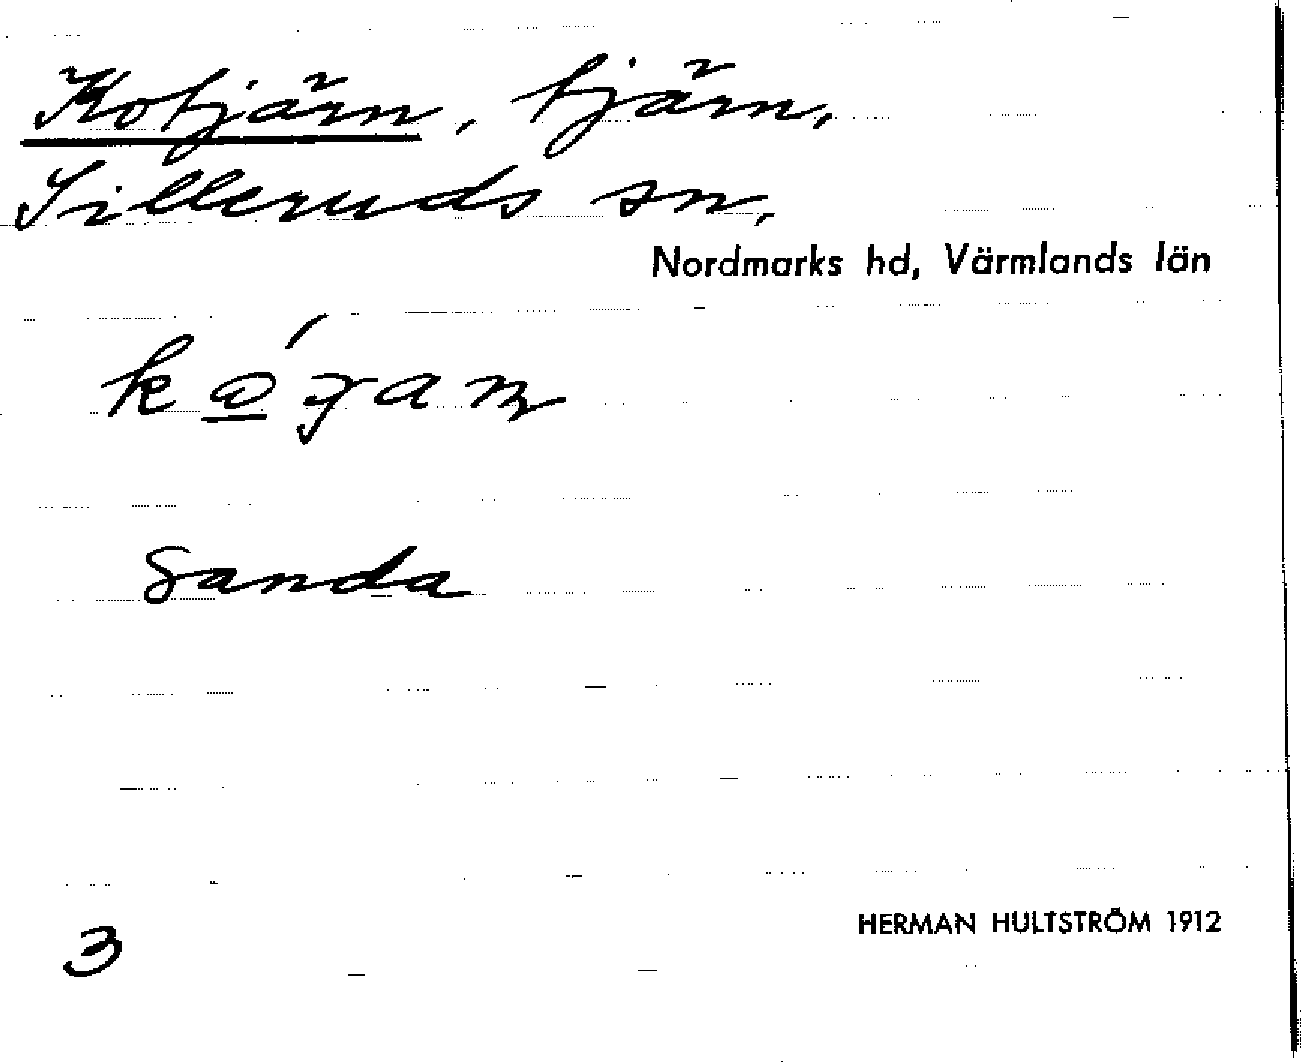 Kotjärn, tjärn,
Silleruds sn,
Nordmarks hd, Värmlands län
Sanda
HERMAN HULTSTRÖM 1912
3